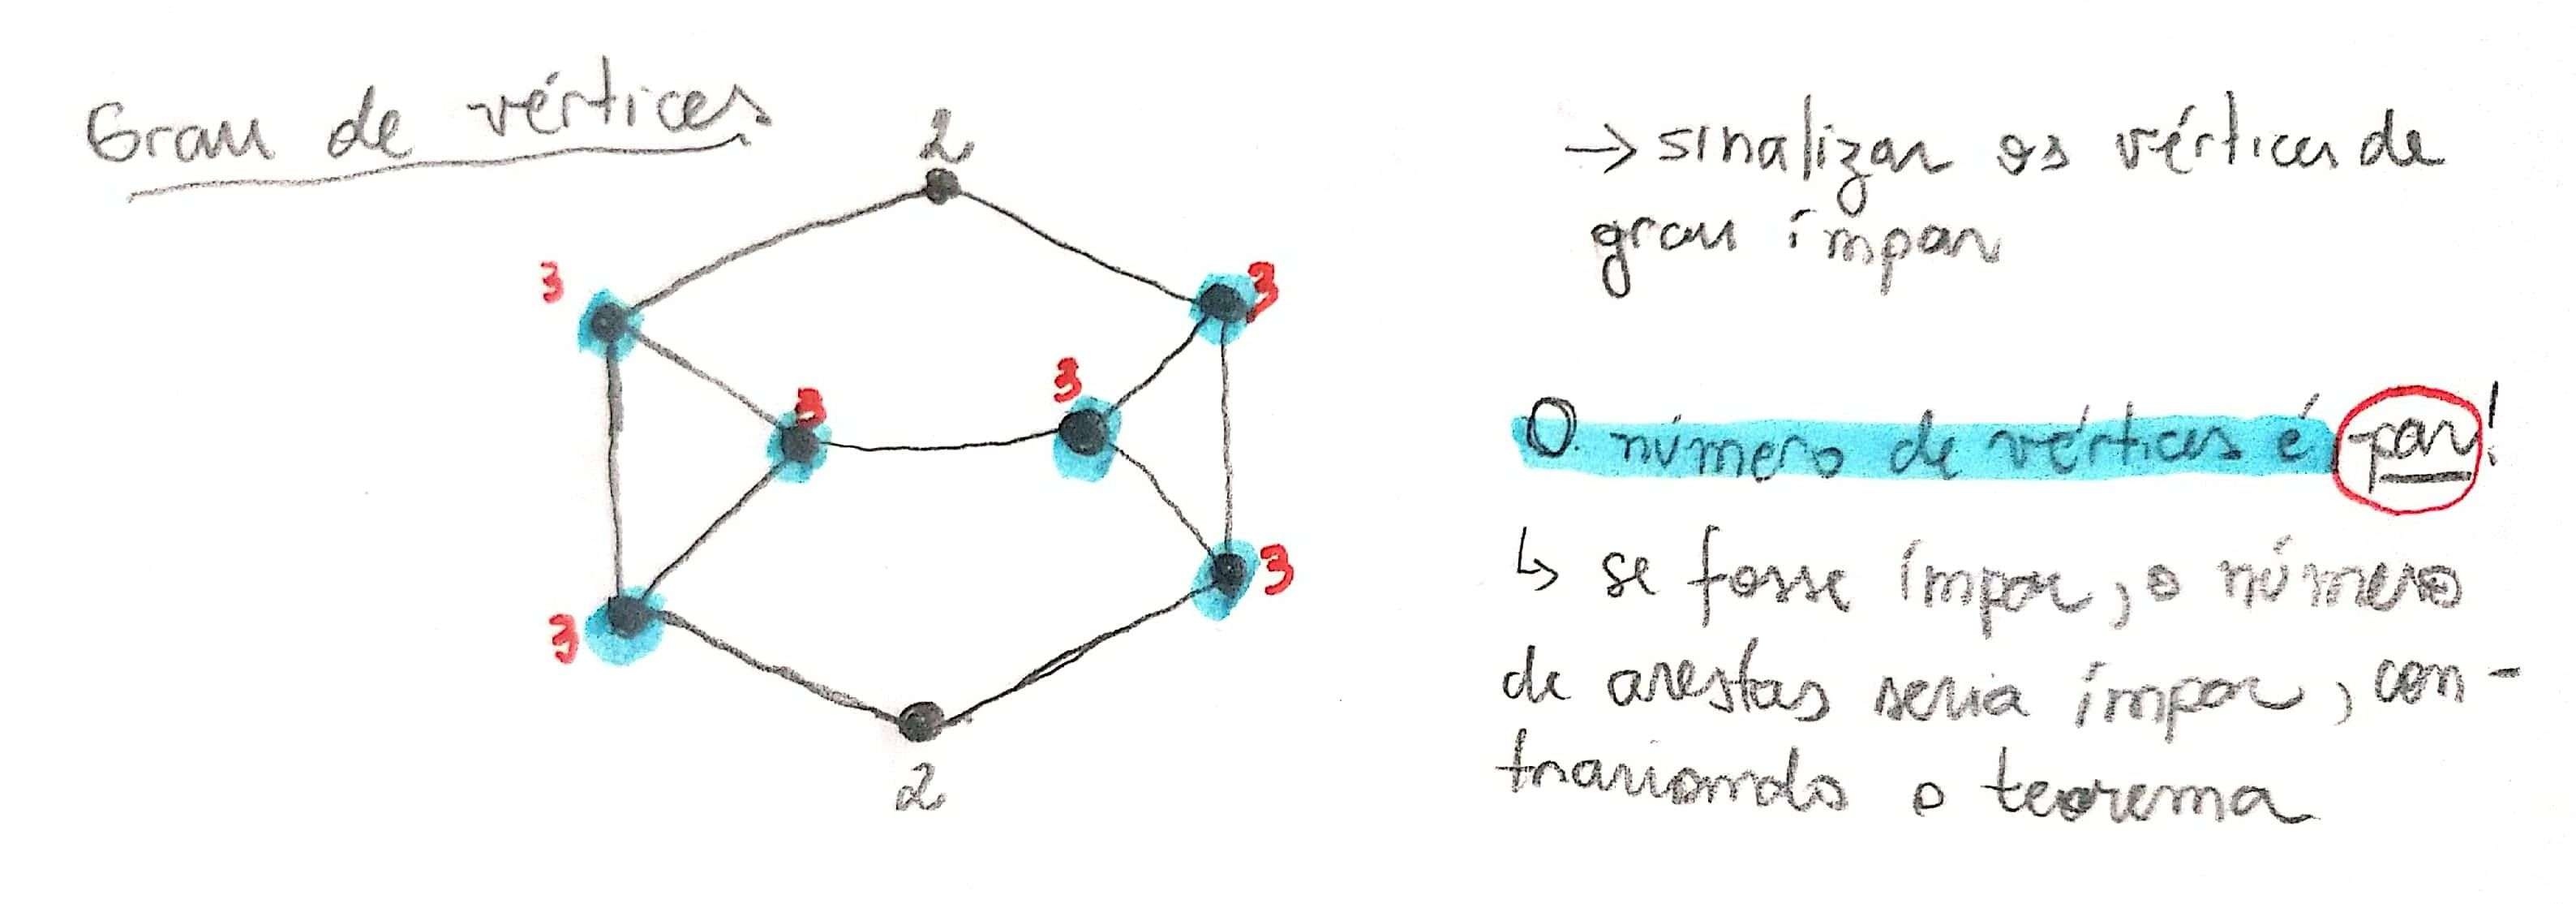 Grau de vértices
2
3
3
3
3
3
3
2
→ sinalizar os vértices de
grau ímpar
O número de vértices é par!
↳ se fosse ímpar, o número
de arestas seria ímpar, con-
trariando o teorema